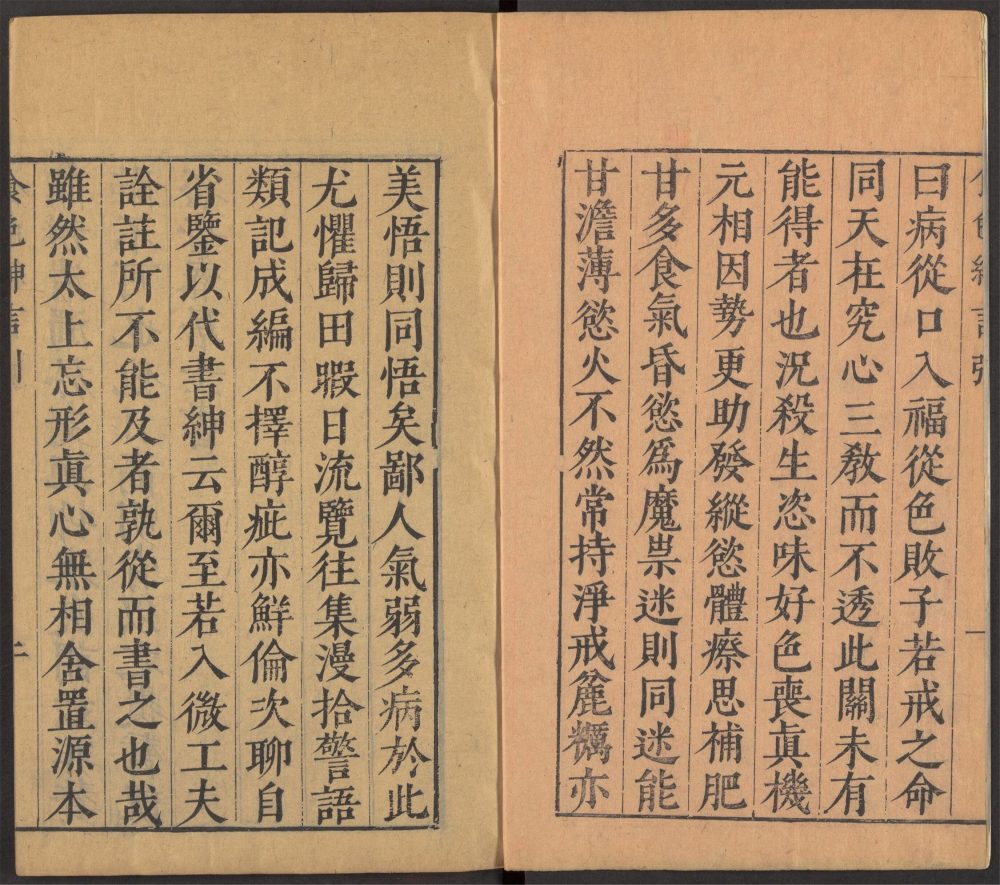 曰病從口入福從色敗子若戒之命
同天在究心三教而不透此關未有
能得者也況殺生恣味好色喪真機
元相因勢更助發縱慾體瘵思補肥
甘多食氣昏慾爲魔祟迷則同迷能
甘澹薄慾火不然常持淨戒麄糲亦
美悟則同悟矣鄙人氣弱多病於此
尤懼歸田暇日流覽往集漫拾警語
類記成編不擇醇疵亦鮮倫次聊自
省鑒以代書紳云爾至若入微工夫
詮註所不能及者孰從而書之也哉
雖然太上忘形眞心無相舍置源本
食色紳言引